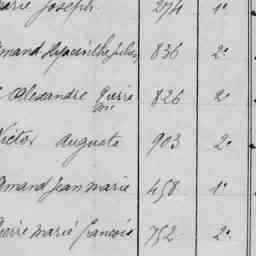 arie Joseph. 274 1°
mand Hyacinthe Julien 836 2°
Alexandre Pierre 826 2°
Marie
Victor Auguste 903 2°
Amand Jean Marie 458 1°
ierre Marie François 752 2°